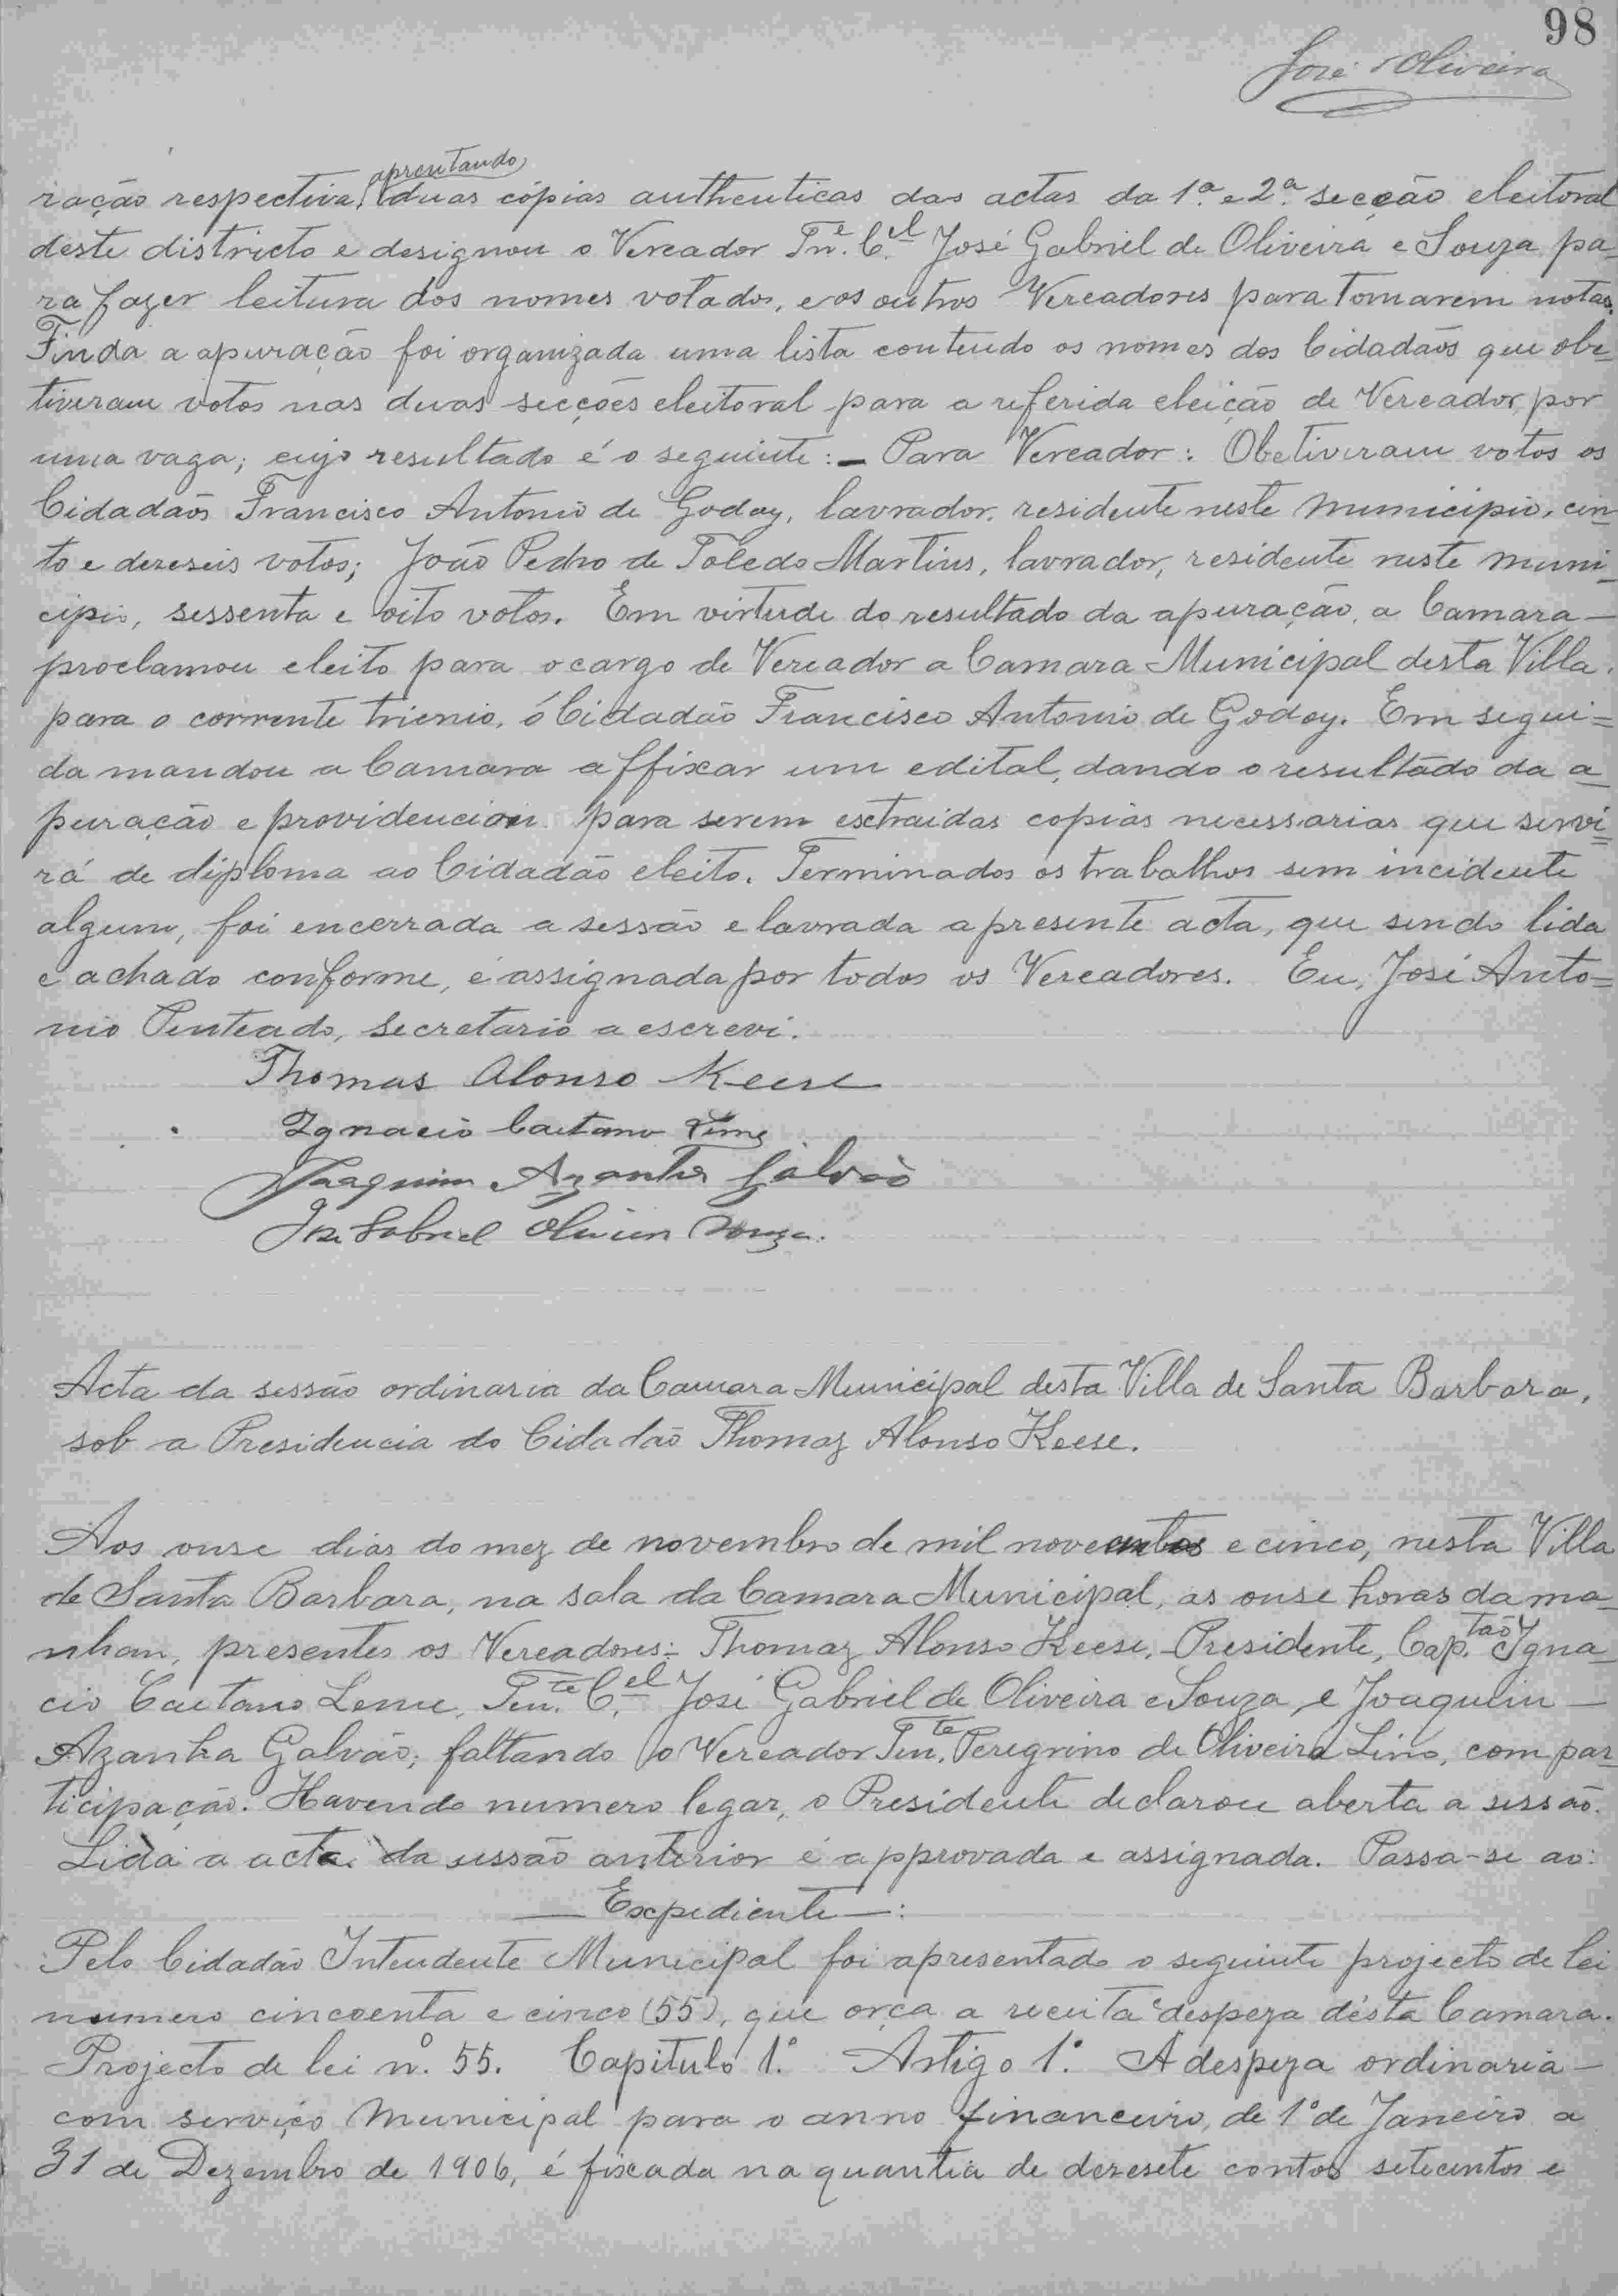 98
José Oliveira
apreutando
ração respectiva, duas cópias authenticas das actas da 1.ª e 2.ª secção eleitoral
deste districto e designou o Vereador Tn.e C.el José Gabriel de Oliveira e Souza pa-
ra fazer leitura dos nomes votados, e os outros Vereadores para tomarem notas.
Finda a apuração foi organizada uma lista contendo os nomes dos Cidadãos que obe-
tiveram votos nas duas secções eleitoral para a referida eleição de Vereador, por
uma vaga; cujo resultado é o seguinte: - Para Vereador: Obetiveram votos os
Cidadãos Francisco Antonio de Godoy, lavrador, residente neste Municipio, cen-
to e dezeseis votos; João Pedro de Toledo Martins, lavrador, residente neste Muni-
cipio, sessenta e oito votos. Em virtude do resultado da apuração, a Camara —
proclamou eleito para o cargo de Vereador a Camara Municipal desta Villa,
para o corrente trienio, ó Cidadão Francisco Antonio de Godoy. Em segui=
da mandou a Camara affixar um edital, dando o resultado da a-
puração e providenciou para serem extraidas copias necessarias que servi=
rá de diploma ao Cidadão eleito. Terminados os trabalhos sem incidente
algum, foi encerrada a sessão e lavrada a presente acta, que sendo lida
e achado conforme, é assignada por todos os Vereadores. Eu, José Anto=
nio Penteado, secretario a escrevi.
Thomas Alonso Keese
Ignacio Caetano Leme
Joaquim Azanha Galvão
José Gabriel Oliveira Souza.
Acta da sessão ordinaria da Camara Municipal desta Villa de Santa Barbara,
sob a Presidencia do Cidadão Thomaz Alonso Keese.
Aos onse dias do mez de novembro de mil novecentos e cinco, nesta Villa
de Santa Barbara, na sala da Camara Municipal, as onse horas da ma-
nhan, presentes os Vereadores: Thomaz Alonso Keese, Presidente, Cap.tão Igna-
cio Caetano Leme, Ten.te C.el José Gabriel de Oliveira e Souza, e Joaquim —
Azanha Galvão; faltando o Vereador Ten.te Peregrino de Oliveira Lino, com par-
ticipação. Havendo numero legar, o Presidente declarou aberta a sessão.
Lida a acta da sessão anterior é approvada e assignada. Passa-se ao:
— Expediente —:
Pelo Cidadão Intendente Municipal foi apresentado o seguinte projecto de lei
numero cincoenta e cinco (55), que orça a receita e despeza désta Camara.
Projecto de lei n.º 55. Capitulo 1.º Artigo 1.º A despeza ordinaria —
com serviço Municipal para o anno financeiro, de 1º de Janeiro a
31 de Dezembro de 1906, é fixada na quantia de dezesete contos setecentos e